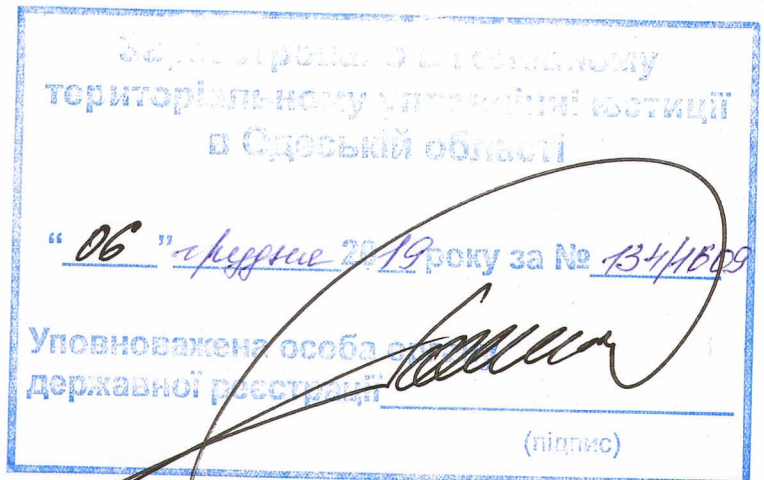 Зареєстровано в Головному
територіальному управлінні юстиції
в Одеській області
“ 06 ” грудня 2019 року за №
Уповноважена особа органу
державної реєстрації
(підпис)